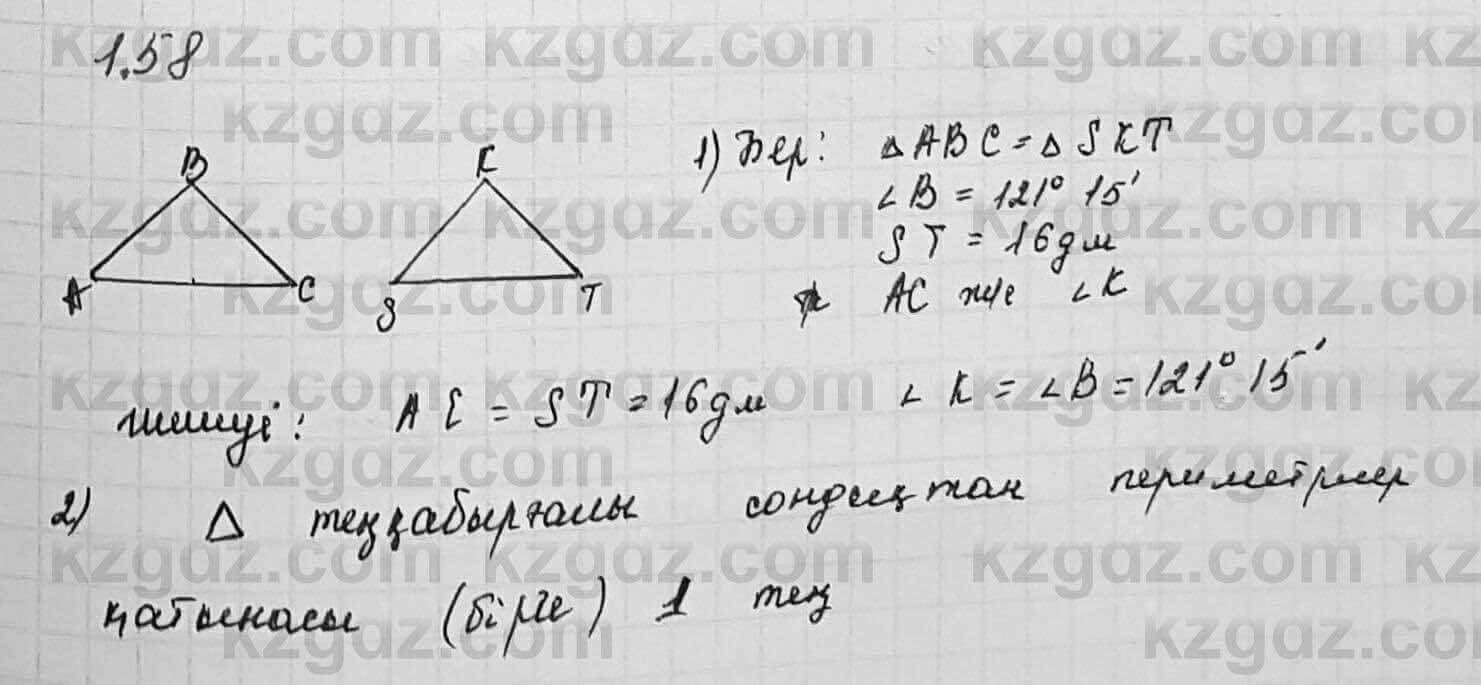 1.58
B K
A C S T
1) Бер: △ABC = △SKT
∠B = 121° 15'
ST = 16дм
AC ж/е ∠K
шешуі: AC = ST = 16дм ∠K = ∠B = 121° 15'
2) △ теңқабырғалы сондықтан периметрлер
қатынасы (бірге) 1 тең
kzgaz.com